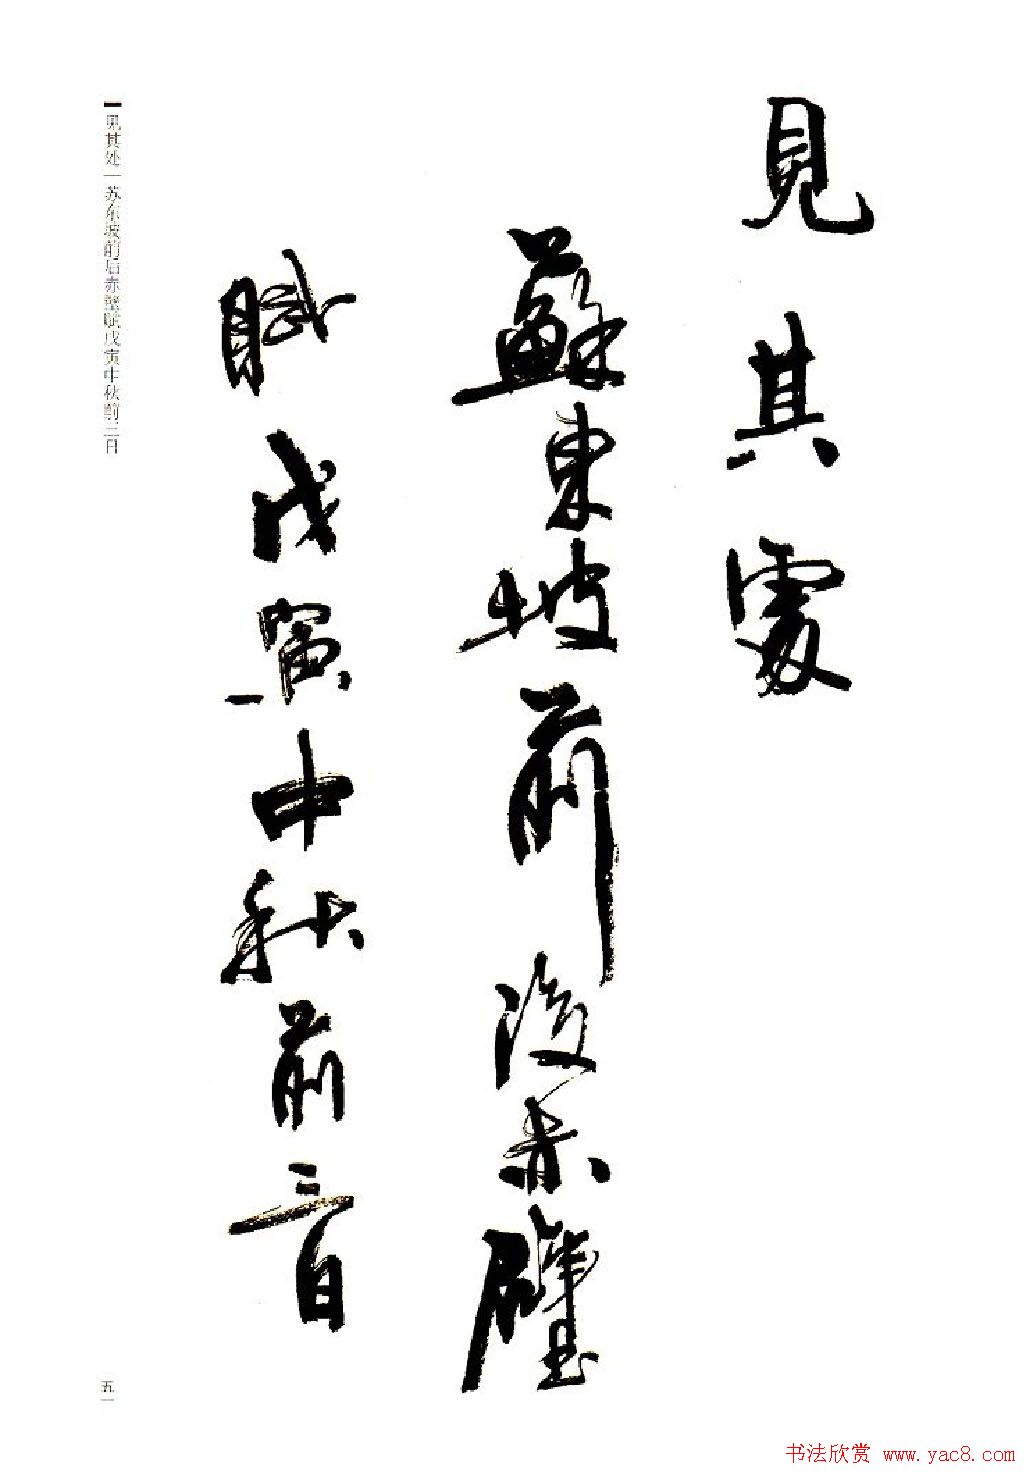 見其處
蘇東坡前後赤壁
賦戊寅中秋前三日
见其处｜苏东坡前后赤壁赋戊寅中秋前三日
五一
书法欣赏 www.yac8.com